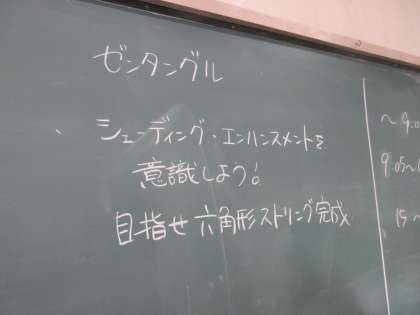 ゼンタングル
シェーディング・エンハンスメントを
意識しよう!
目指せ 六角形ストリング完成
～9.0
9.05～
15～